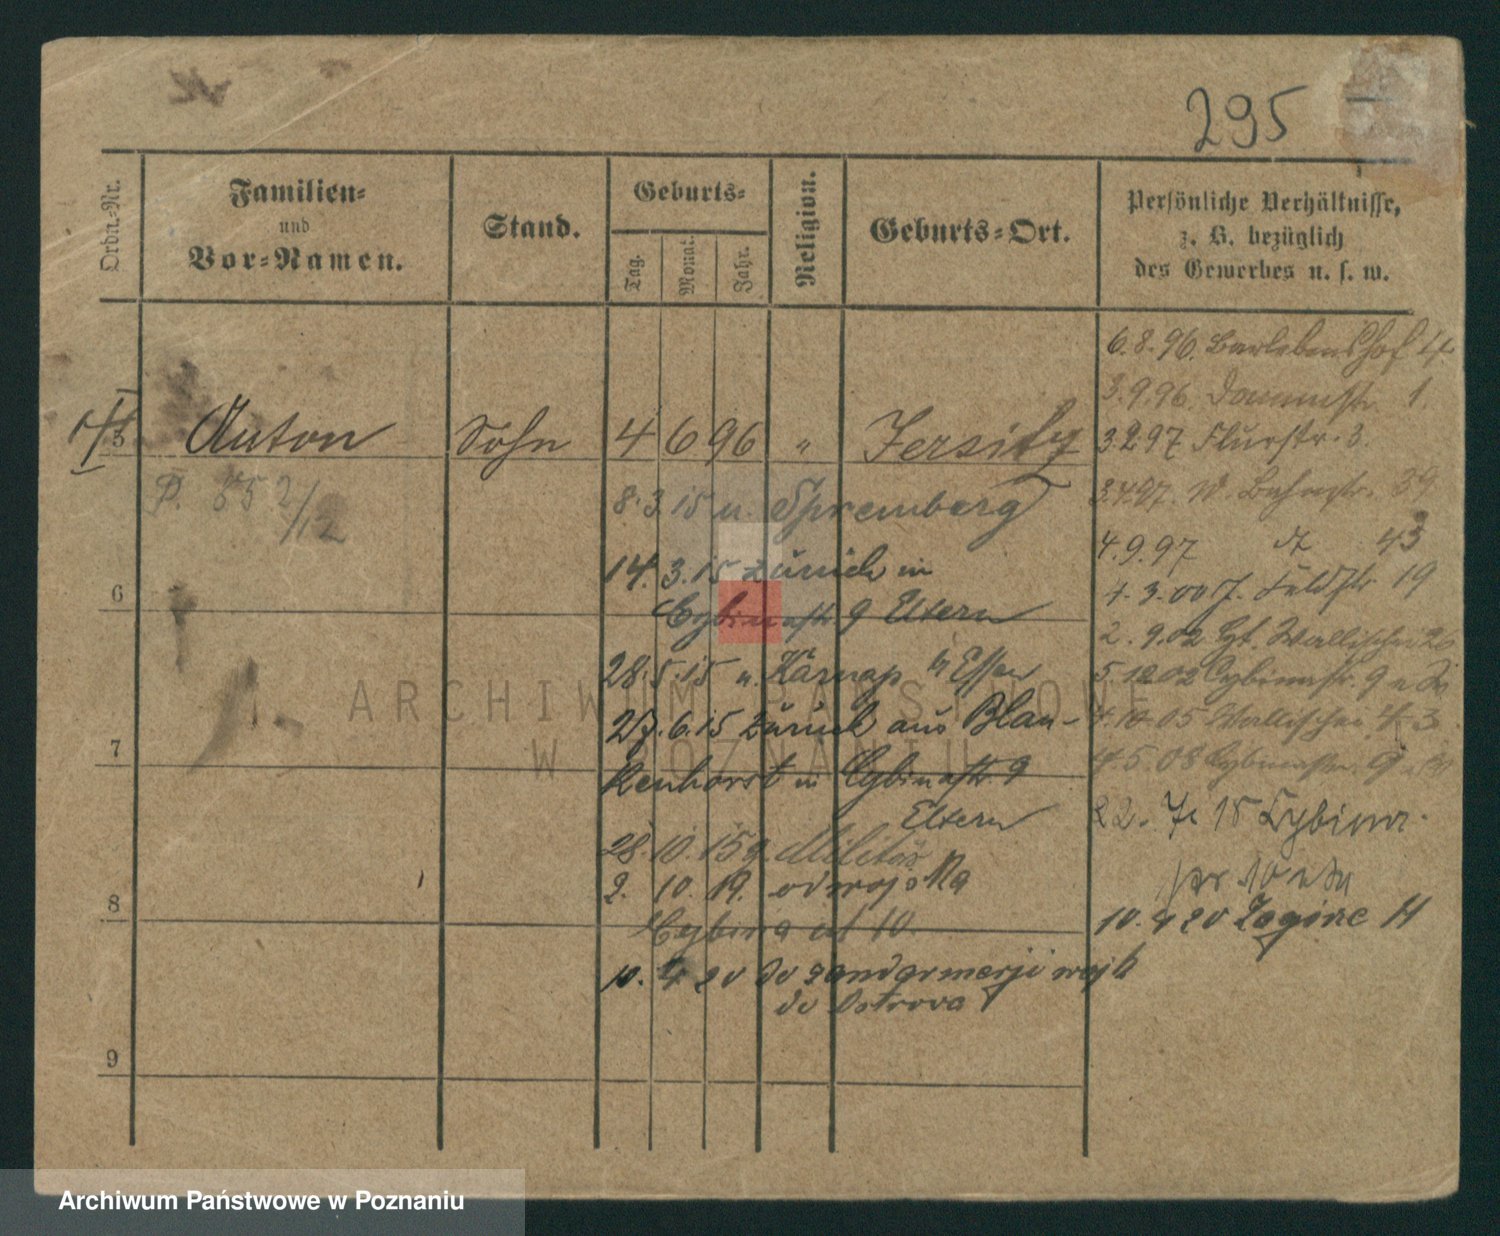 295
Ordn.-Nr.
Familien-
und
Vor-Namen.
Stand.
Geburts-
Tag.
Monat.
Jahr.
Religion.
Geburts-Ort.
Persönliche Verhältnisse,
z. B. bezüglich
des Gewerbes u. s. w.
6.8.96. Barlebenshof 4
3.9.96. Dammstr. 1.
5 Anton Sohn 4 6 96 " Jersitz
3.2.97 Flurstr. 3.
P. 2/12
8.3.15 u. Spremberg
3.4.97. W. Bahnstr. 39
4.9.97 43
14.3.15 zurück in
1.3.00 J. Feldstr 19
6
Cybinastr 9 Eltern
2.9.02 Wallischei
28.5.15 u. Karnap b/ Essen
5.12.02 Cybinastr. 9
27.6.15 zurück aus Blan-
05 Wallischei 3
7
kenhorst in Cybinastr. 9
Eltern
4.5.08 Cybinastr. 9
22. 15 Cybina-
28.10.15 z. Militär
2. 10. 19. od wojska
str 10
8
Cybina ul 10.
10. 4 20 Zagórze 11
10. 4 20 do żandarmerji wojsk
do Ostrowa
9
ARCHIWUM PAŃSTWOWE
W POZNANIU
Archiwum Państwowe w Poznaniu